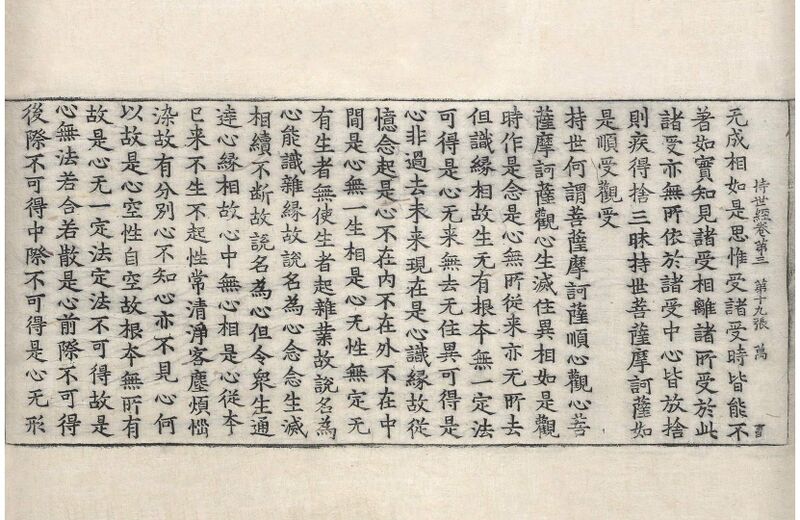 持世經卷第三　第十九張　萬
无成相如是思惟受諸受時皆能不
著如實知見諸受相離諸所受於此
諸受亦無所依於諸受中心皆放捨
則疾得捨三昧持世菩薩摩訶薩如
是順受觀受
持世何謂菩薩摩訶薩順心觀心菩
薩摩訶薩觀心生滅住異相如是觀
時作是念是心無所從来亦无所去
但識緣相故生无有根夲無一定法
可得是心无来無去无住異可得是
心非過去未来現在是心識緣故從
憶念起是心不在內不在外不在中
間是心無一生相是心无性無定无
有生者無使生者起雜業故說名為
心能識雜緣故說名為心念念生滅
相續不斷故說名為心但令衆生通
達心緣相故心中無心相是心從夲
已来不生不起性常清淨客塵煩惱
染故有分別心不知心亦不見心何
以故是心空性自空故根夲無所有
故是心无一定法定法不可得故是
心無法若合若散是心前際不可得
後際不可得中際不可得是心无形